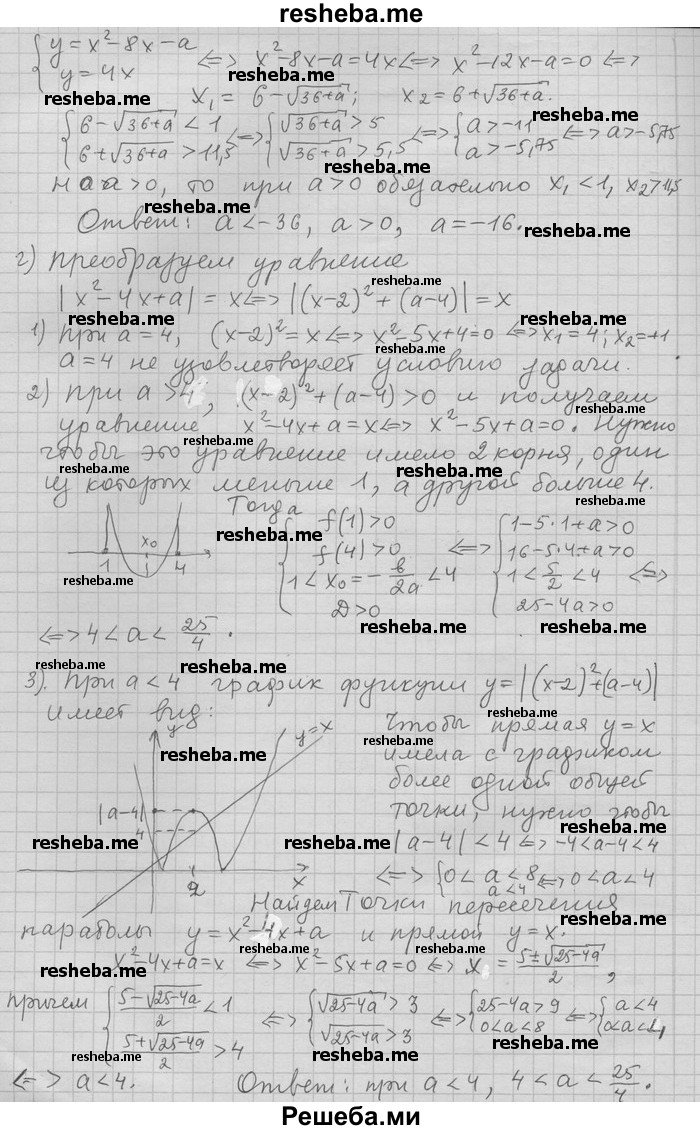 resheba.me
{ y = x² - 8x - a
y = 4x <=> x² - 8x - a = 4x <=> x² - 12x - a = 0 <=>
resheba.me resheba.me
x₁ = 6 - √36+a ; x₂ = 6 + √36+a.
{ 6 - √36+a < 1
6 + √36+a > 11,5 <=> { √36+a > 5
√36+a > 5,5 <=> { a > -11
a > -5,75 <=> a > -5,75
На a > 0, то при a > 0 обязательно x₁ < 1, x₂ > 11,5
Ответ: a < -36, a > 0, a = -16.
г) преобразуем уравнение
|x² - 4x + a| = x <=> |(x-2)² + (a-4)| = x
1) при a = 4, (x-2)² = x <=> x² - 5x + 4 = 0 <=> x₁ = 4; x₂ = +1
a = 4 не удовлетворяет условию задачи.
2) при a > 4, (x-2)² + (a-4) > 0 и получаем
уравнение x² - 4x + a = x <=> x² - 5x + a = 0. Нужно
чтобы это уравнение имело 2 корня, один
из которых меньше 1, а другой больше 4.
Тогда
x₀
1 4
{ f(1) > 0
f(4) > 0
1 < x₀ = -b/2a < 4
D > 0
<=> { 1 - 5·1 + a > 0
16 - 5·4 + a > 0
1 < 5/2 < 4
25 - 4a > 0 <=>
<=> 4 < a < 25/4.
3). при a < 4 график функции y = |(x-2)² + (a-4)|
имеет вид:
y y = x
|a-4|
4
2 x
Чтобы прямая y = x
имела с графиком
более одной общей
точки, нужно чтобы
|a-4| < 4 <=> -4 < a-4 < 4
<=> { 0 < a < 8
a < 4 <=> 0 < a < 4
Найдем точки пересечения
параболы y = x² - 4x + a и прямой y = x.
x² - 4x + a = x <=> x² - 5x + a = 0 <=> x = 5±√25-4a / 2,
причем { 5-√25-4a / 2 < 1
5+√25-4a / 2 > 4 <=> { √25-4a > 3
√25-4a > 3 <=> { 25-4a > 9
0 < a < 8 <=> { a < 4
0 < a < 4
<=> a < 4. Ответ: при a < 4, 4 < a < 25/4.
Решеба.ми